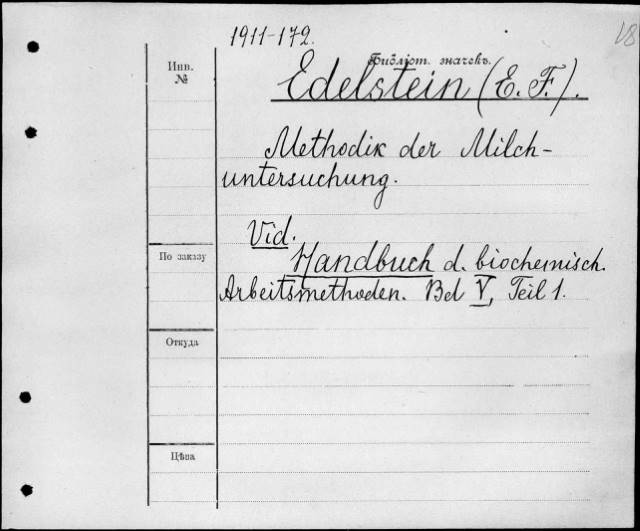 18
1911-172.
Библіот. значекъ.
Инв.
№
Edelstein (E. F.).
Methodik der Milch-
untersuchung.
Vid.
Handbuch d. biochemisch.
По заказу
Arbeitsmethoden. Bd V, Teil 1.
Откуда
Цѣна